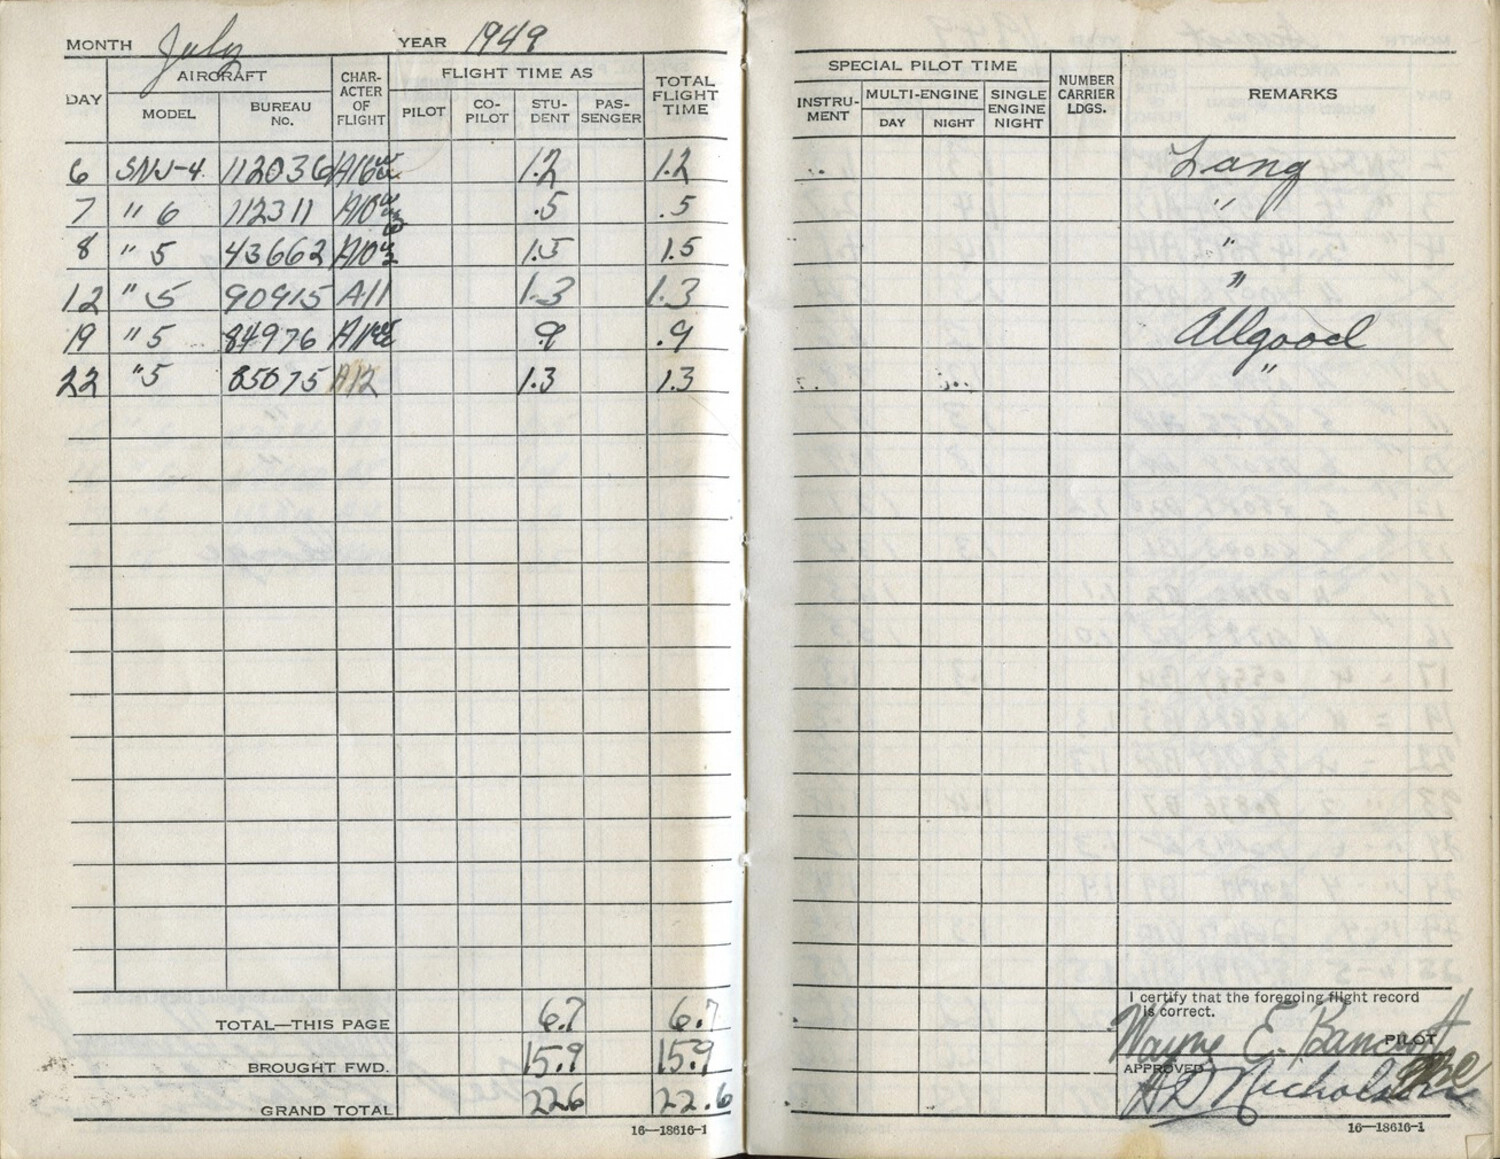 MONTH July YEAR 1949
DAY AIRCRAFT CHAR-ACTER OF FLIGHT FLIGHT TIME AS TOTAL FLIGHT TIME
MODEL BUREAU NO. PILOT CO-PILOT STU-DENT PAS-SENGER
6 SNJ-4 112036 1.2 1.2
7 " 6 112311 .5 .5
8 " 5 43662 1.5 1.5
12 " 5 90915 A11 1.3 1.3
19 " 5 84976 .9 .9
22 " 5 85075 A12 1.3 1.3
TOTAL—THIS PAGE 6.7 6.7
BROUGHT FWD. 15.9 15.9
GRAND TOTAL 22.6 22.6
16—18616-1
SPECIAL PILOT TIME NUMBER CARRIER LDGS. REMARKS
INSTRU-MENT MULTI-ENGINE SINGLE ENGINE NIGHT
DAY NIGHT
Lang
"
"
"
Allgood
"
I certify that the foregoing flight record
is correct.
Wayne E. Bancroft PILOT
APPROVED
A D Nicholson
16—18616-1